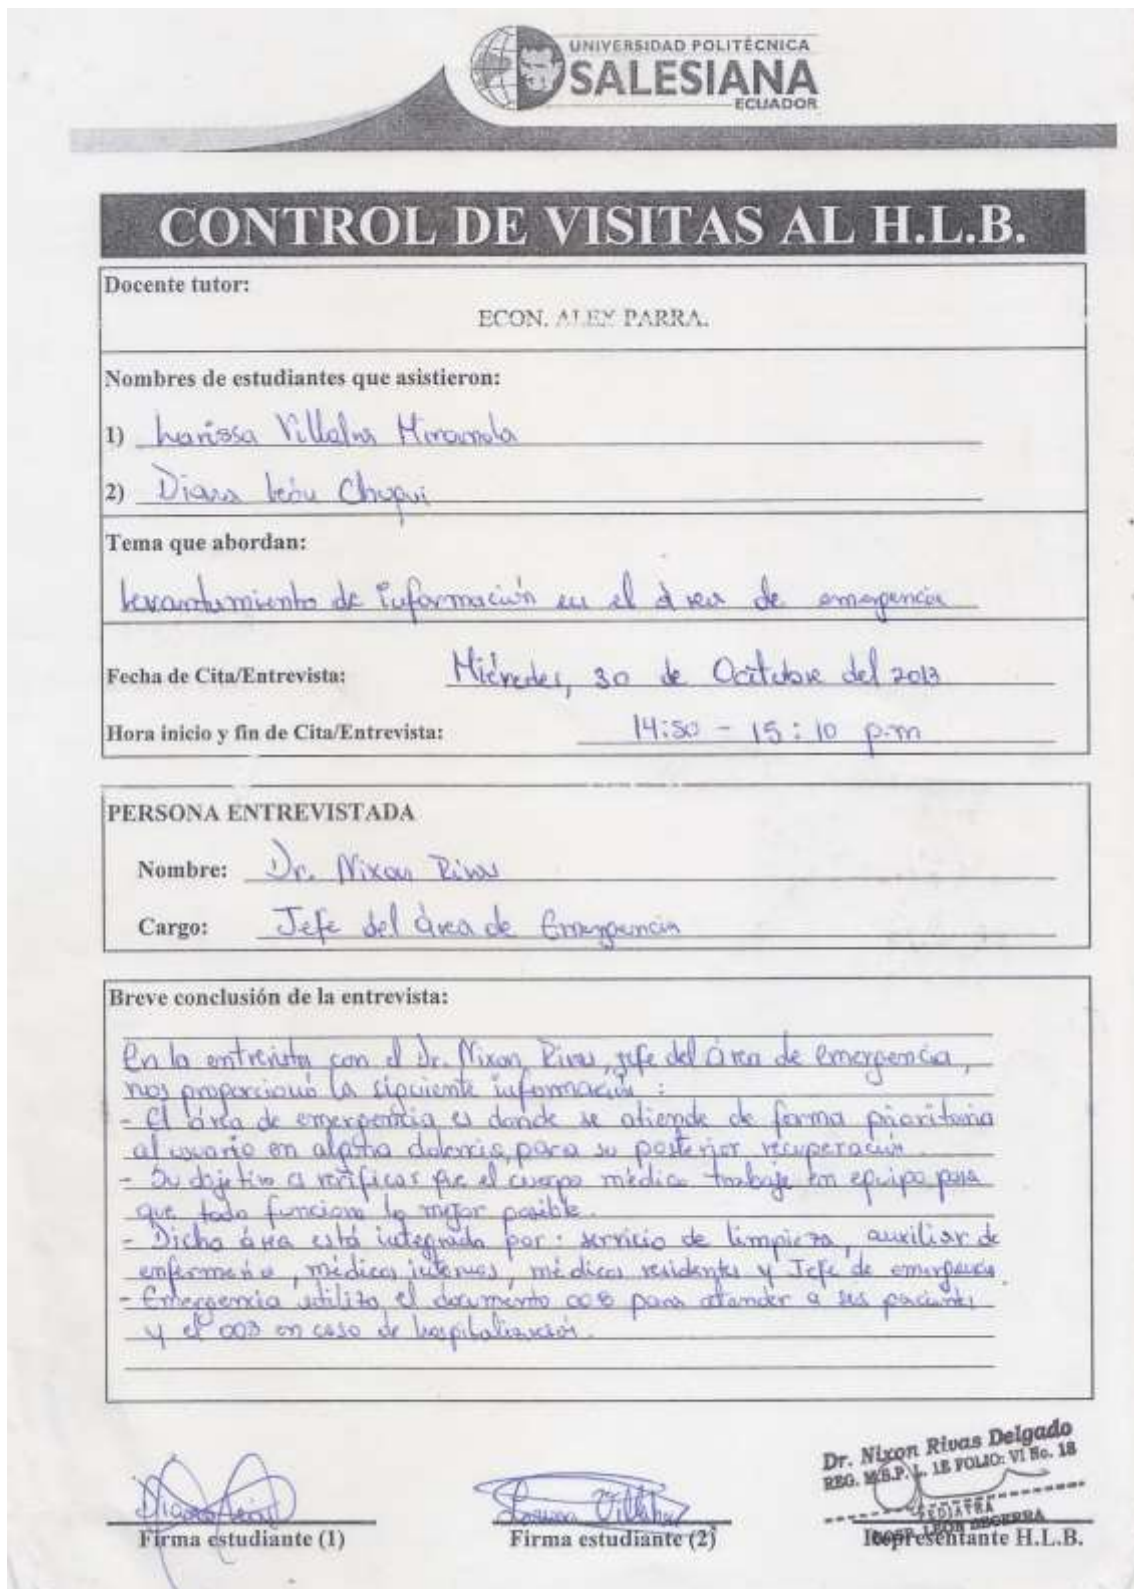 UNIVERSIDAD POLITÉCNICA
SALESIANA
ECUADOR
CONTROL DE VISITAS AL H.L.B.
Docente tutor:
ECON. ALEX PARRA.
Nombres de estudiantes que asistieron:
1) Larissa Villalva Miranda
2) Diana León Chuqui
Tema que abordan:
Levantamiento de información en el área de emergencia
Fecha de Cita/Entrevista: Miércoles, 30 de Octubre del 2013
Hora inicio y fin de Cita/Entrevista: 14:50 - 15:10 p.m
PERSONA ENTREVISTADA
Nombre: Dr. Nixon Rivas
Cargo: Jefe del área de Emergencia
Breve conclusión de la entrevista:
En la entrevista con el Dr. Nixon Rivas, jefe del área de emergencia,
nos proporcionó la siguiente información :
- El área de emergencia es donde se atiende de forma prioritaria
al usuario en alguna dolencia, para su posterior recuperación.
- Su objetivo es verificar que el cuerpo médico trabaje en equipo para
que todo funcione lo mejor posible.
- Dicha área está integrada por: servicio de limpieza, auxiliar de
enfermería, médicos internos, médicos residentes y Jefe de emergencia
- Emergencia utiliza el documento 008 para atender a sus pacientes
y el 003 en caso de hospitalización.
Dr. Nixon Rivas Delgado
REG. M.S.P. L. 1E FOLIO: VI No. 18
PEDIATRA
HOSP. LEON BECERRA
Diana León
Larissa Villalva
Firma estudiante (1) Firma estudiante (2) Representante H.L.B.